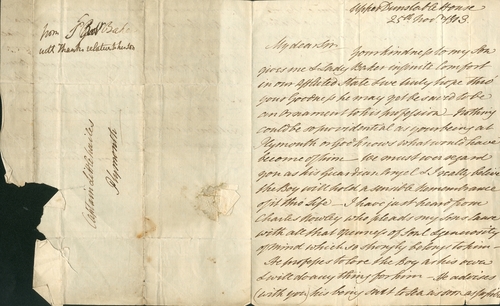 from Sr Robt Baker
with Thanks relative to his son
Captain Whitby
Plymouth
Upper Dunstable House
25th Novr 1813
My dear Sir
Your kindness to my Son
gives me & Lady Baker infinite Comfort
in our afflicted State & we truly hope thro
your Goodness he may yet be saved to be
an ornament to his profession. Nothing
could be so providential as your being at
Plymouth or God knows what would have
become of him — We must ever regard
you as his Guardian Angel & I really believe
the Boy will hold a suitable remembrance
of it thro Life — I have just heard from
Charles Rowley who pleads my Sons cause
with all that openness of Soul & generosity
of mind which so strongly belong to him —
He professes to love the Boy as his own
& will do anything for him — He advises
(with you) his being sent to Sea as soon as possible